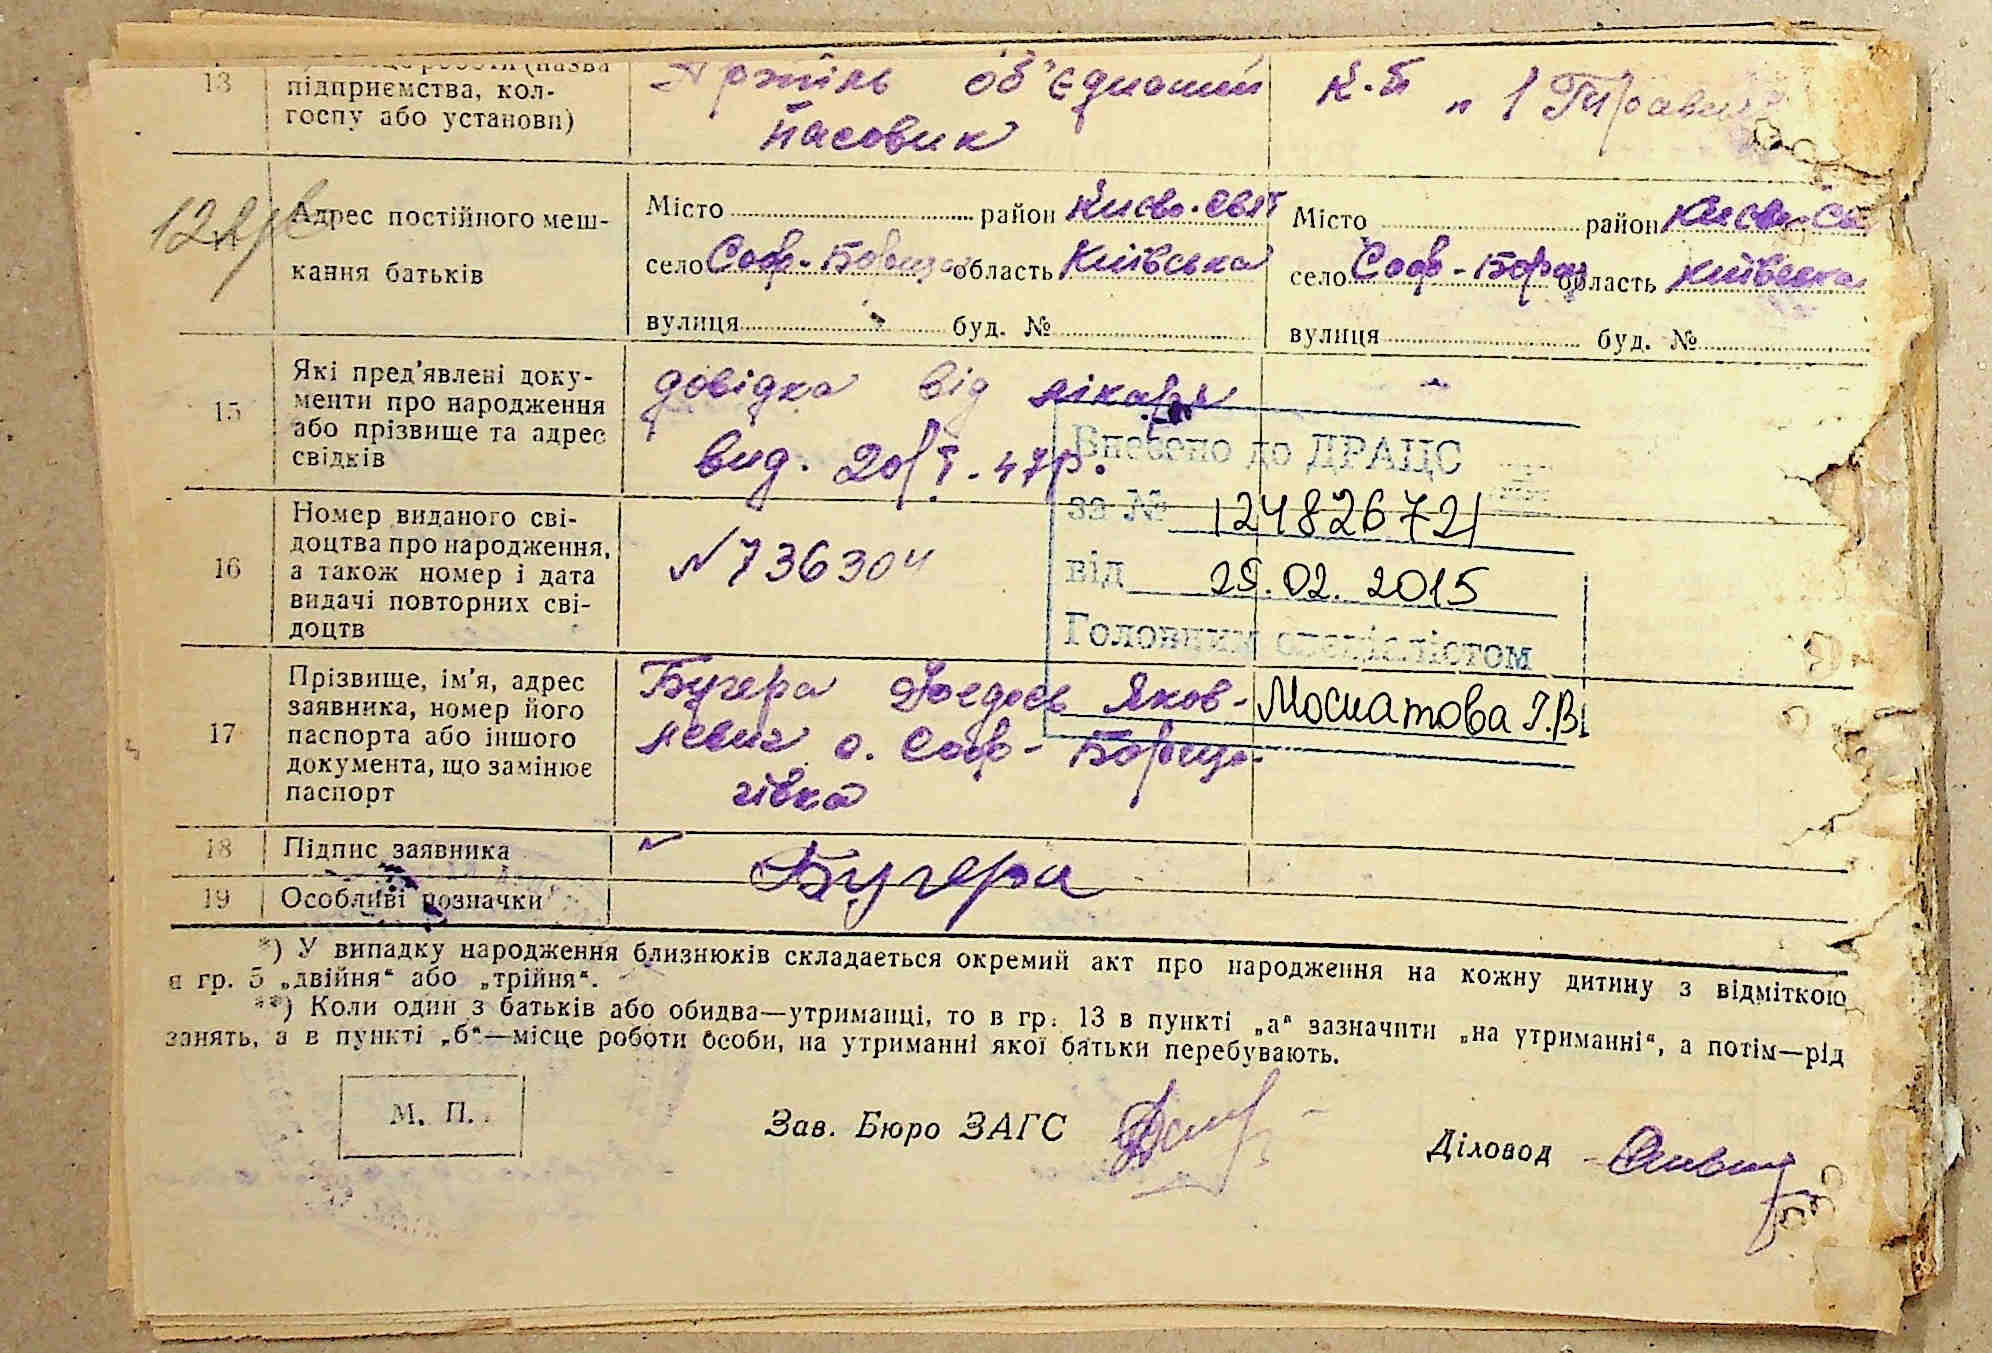 13
підприємства, кол-
госпу або установи)
об'єднаний
К.-п „ 1 Травня
Адрес постійного меш-
кання батьків
Місто район Києво-Свят
село Соф-Борщаг область Київська
вулиця буд. №
Місто район Києво-Св
село Соф-Борщ область Київська
вулиця буд. №
15
Які пред'явлені доку-
менти про народження
або прізвище та адрес
свідків
довідка від лікаря
вид. 20/I-47р.
16
Номер виданого сві-
доцтва про народження,
а також номер і дата
видачі повторних сві-
доцтв
№736304
Внесено до ДРАЦС
за № 124826721
від 25.02.2015
Головним спеціалістом
Москатова І.В.
17
Прізвище, ім'я, адрес
заявника, номер його
паспорта або іншого
документа, що замінює
паспорт
Бугера Федось Яков-
левич с. Соф-Борща-
гівка
18
Підпис заявника
Бугера
19
Особливі позначки
*) У випадку народження близнюків складається окремий акт про народження на кожну дитину з відміткою
в гр. 5 „двійня“ або „трійня“.
**) Коли один з батьків або обидва—утриманці, то в гр. 13 в пункті „а“ зазначити „на утриманні“, а потім—рід
занять, а в пункті „б“—місце роботи особи, на утриманні якої батьки перебувають.
М. П.
Зав. Бюро ЗАГС
Діловод